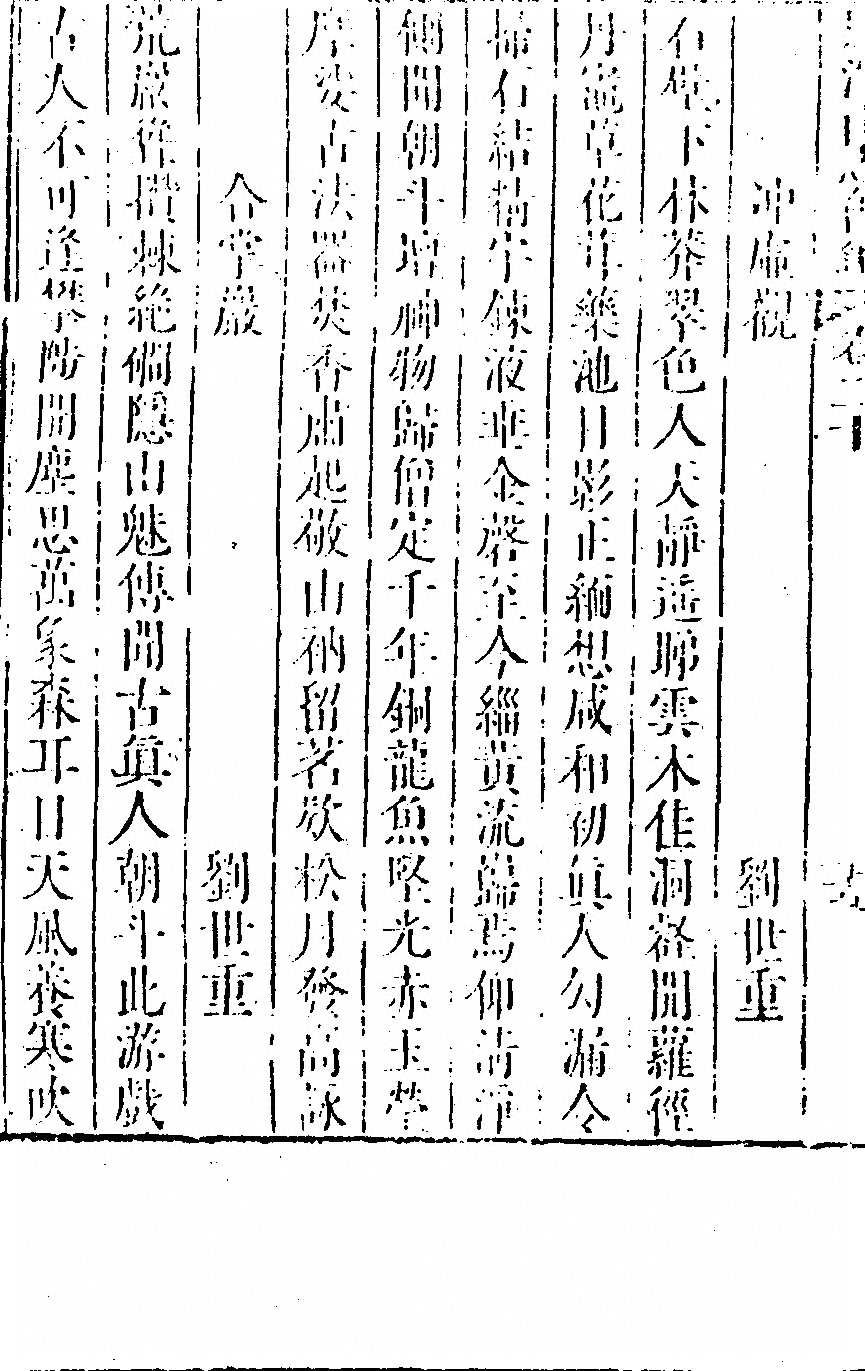 冲虛觀 劉世重
石壁下休莽翠色人天靜遥睇雲木佳洞壑開蘿徑
丹竈草花草藥池日影正緬想咸和初眞人勾漏令
掃石結精宇錬液垂金磬至今緇黃流歸焉仰清淨
側聞朝斗壇神物歸僧定千年銅龍魚堅光赤玉瑩
摩娑古法器焚香肅起敬山衲留茗飲松月發高詠
合掌巖 劉世重
荒巖莽攢棘絶磵隱山魅傳聞古眞人朝斗此游戲
古人不可逢攀陟開塵思萬象森耳目天風養寒吹